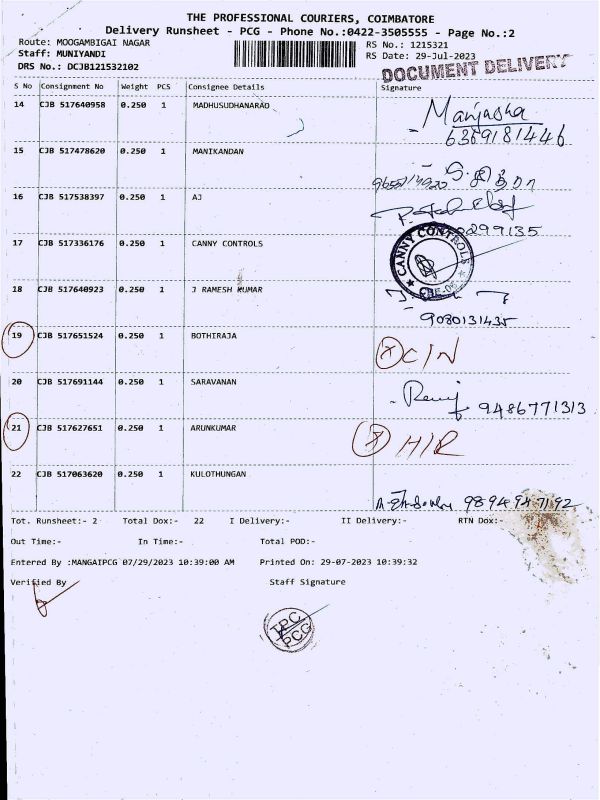 THE PROFESSIONAL COURIERS, COIMBATORE
Delivery Runsheet - PCG - Phone No.:0422-3505555 - Page No.:2
Route: MOOGAMBIGAI NAGAR RS No.: 1215321
Staff: MUNIYANDI RS Date: 29-Jul-2023
DRS No.: DCJB121532102 DOCUMENT DELIVERY
S No Consignment No Weight PCS Consignee Details Signature
14 CJB 517640958 0.250 1 MADHUSUDHANARAO Manjusha
6369181446
15 CJB 517478620 0.250 1 MANIKANDAN
16 CJB 517538397 0.250 1 AJ
17 CJB 517336176 0.250 1 CANNY CONTROLS CANNY CONTROLS CBE-06
18 CJB 517640923 0.250 1 J RAMESH KUMAR
9080131435
19 CJB 517651524 0.250 1 BOTHIRAJA C/N
20 CJB 517691144 0.250 1 SARAVANAN
9486771313
21 CJB 517627651 0.250 1 ARUNKUMAR H/R
22 CJB 517063620 0.250 1 KULOTHUNGAN
9894947192
Tot. Runsheet:- 2 Total Dox:- 22 I Delivery:- II Delivery:- RTN Dox:-
Out Time:- In Time:- Total POD:-
Entered By :MANGAIPCG 07/29/2023 10:39:00 AM Printed On: 29-07-2023 10:39:32
Verified By Staff Signature
TPC
PCG